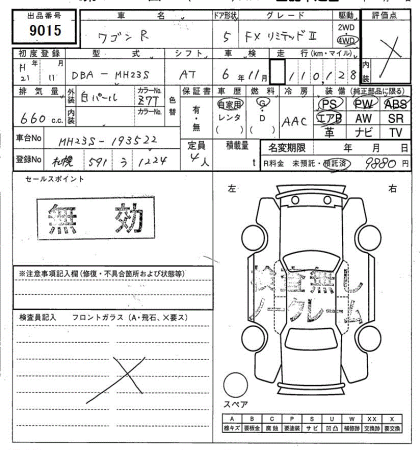 出品番号 車名 ドア形状 グレード 駆動 評価点
9015 ワゴンR 5 FXリミテッドⅡ 2WD 4WD
初度登録 型式 シフト 車検 走行(km・マイル) 内装
H21 11 DBA-MH23S AT 6年11月 110,128
排気量 外装 白パール カラーNo. Z7T 色替 保証書 車歴 燃料 冷房 装備(純正部品に限る)
660 c.c. 内装 カラーNo. 有・無 自家用 レンタ ( ) G D ( ) AAC PS PW ABS
エアB AW SR
革 ナビ TV
車台No MH23S-193522 定員 4人 積載量 t 名変期限 年 月 日
登録No 札幌 591 う 1224 R料金 未預託・預託済 9880円
セールスポイント
無効
左 右
※注意事項記入欄(修復・不具合箇所および状態等)
検査無し
ノークレーム
検査員記入 フロントガラス(A・飛石、×要ス)
スペア
A B C P S U W XX X
線キズ 要板金 腐蝕 要塗装 サビ 凹凸 補修跡 交換跡 要交換